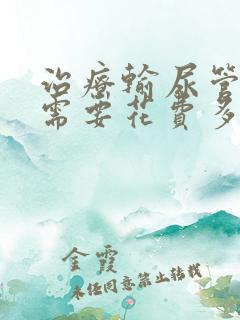 治療輸尿管
需要花費多
金霞
未经同意禁止转载